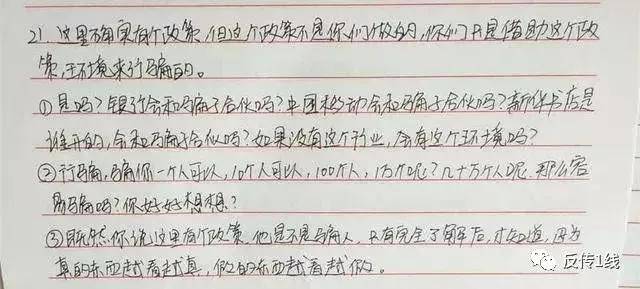 21、这里确实有个政策,但这个政策不是你们做的,你们只是借助这个政
策,王环境来行骗的。
①是吗?银行会和骗子合伙吗?中国移动会和骗子合伙吗?新华书店是
谁开的,会和骗子合伙吗?如果没有这个行业,会有这个环境吗?
②行骗,骗你一个人可以,10个人可以,100个人,1万个呢?几十万个人呢,那么容
易骗吗?你好好想想?
③既然你说这里有个政策,他是不是骗人,只有完全了解后,才知道,因为
真的东西越看越真,假的东西越看越假。
反传1线